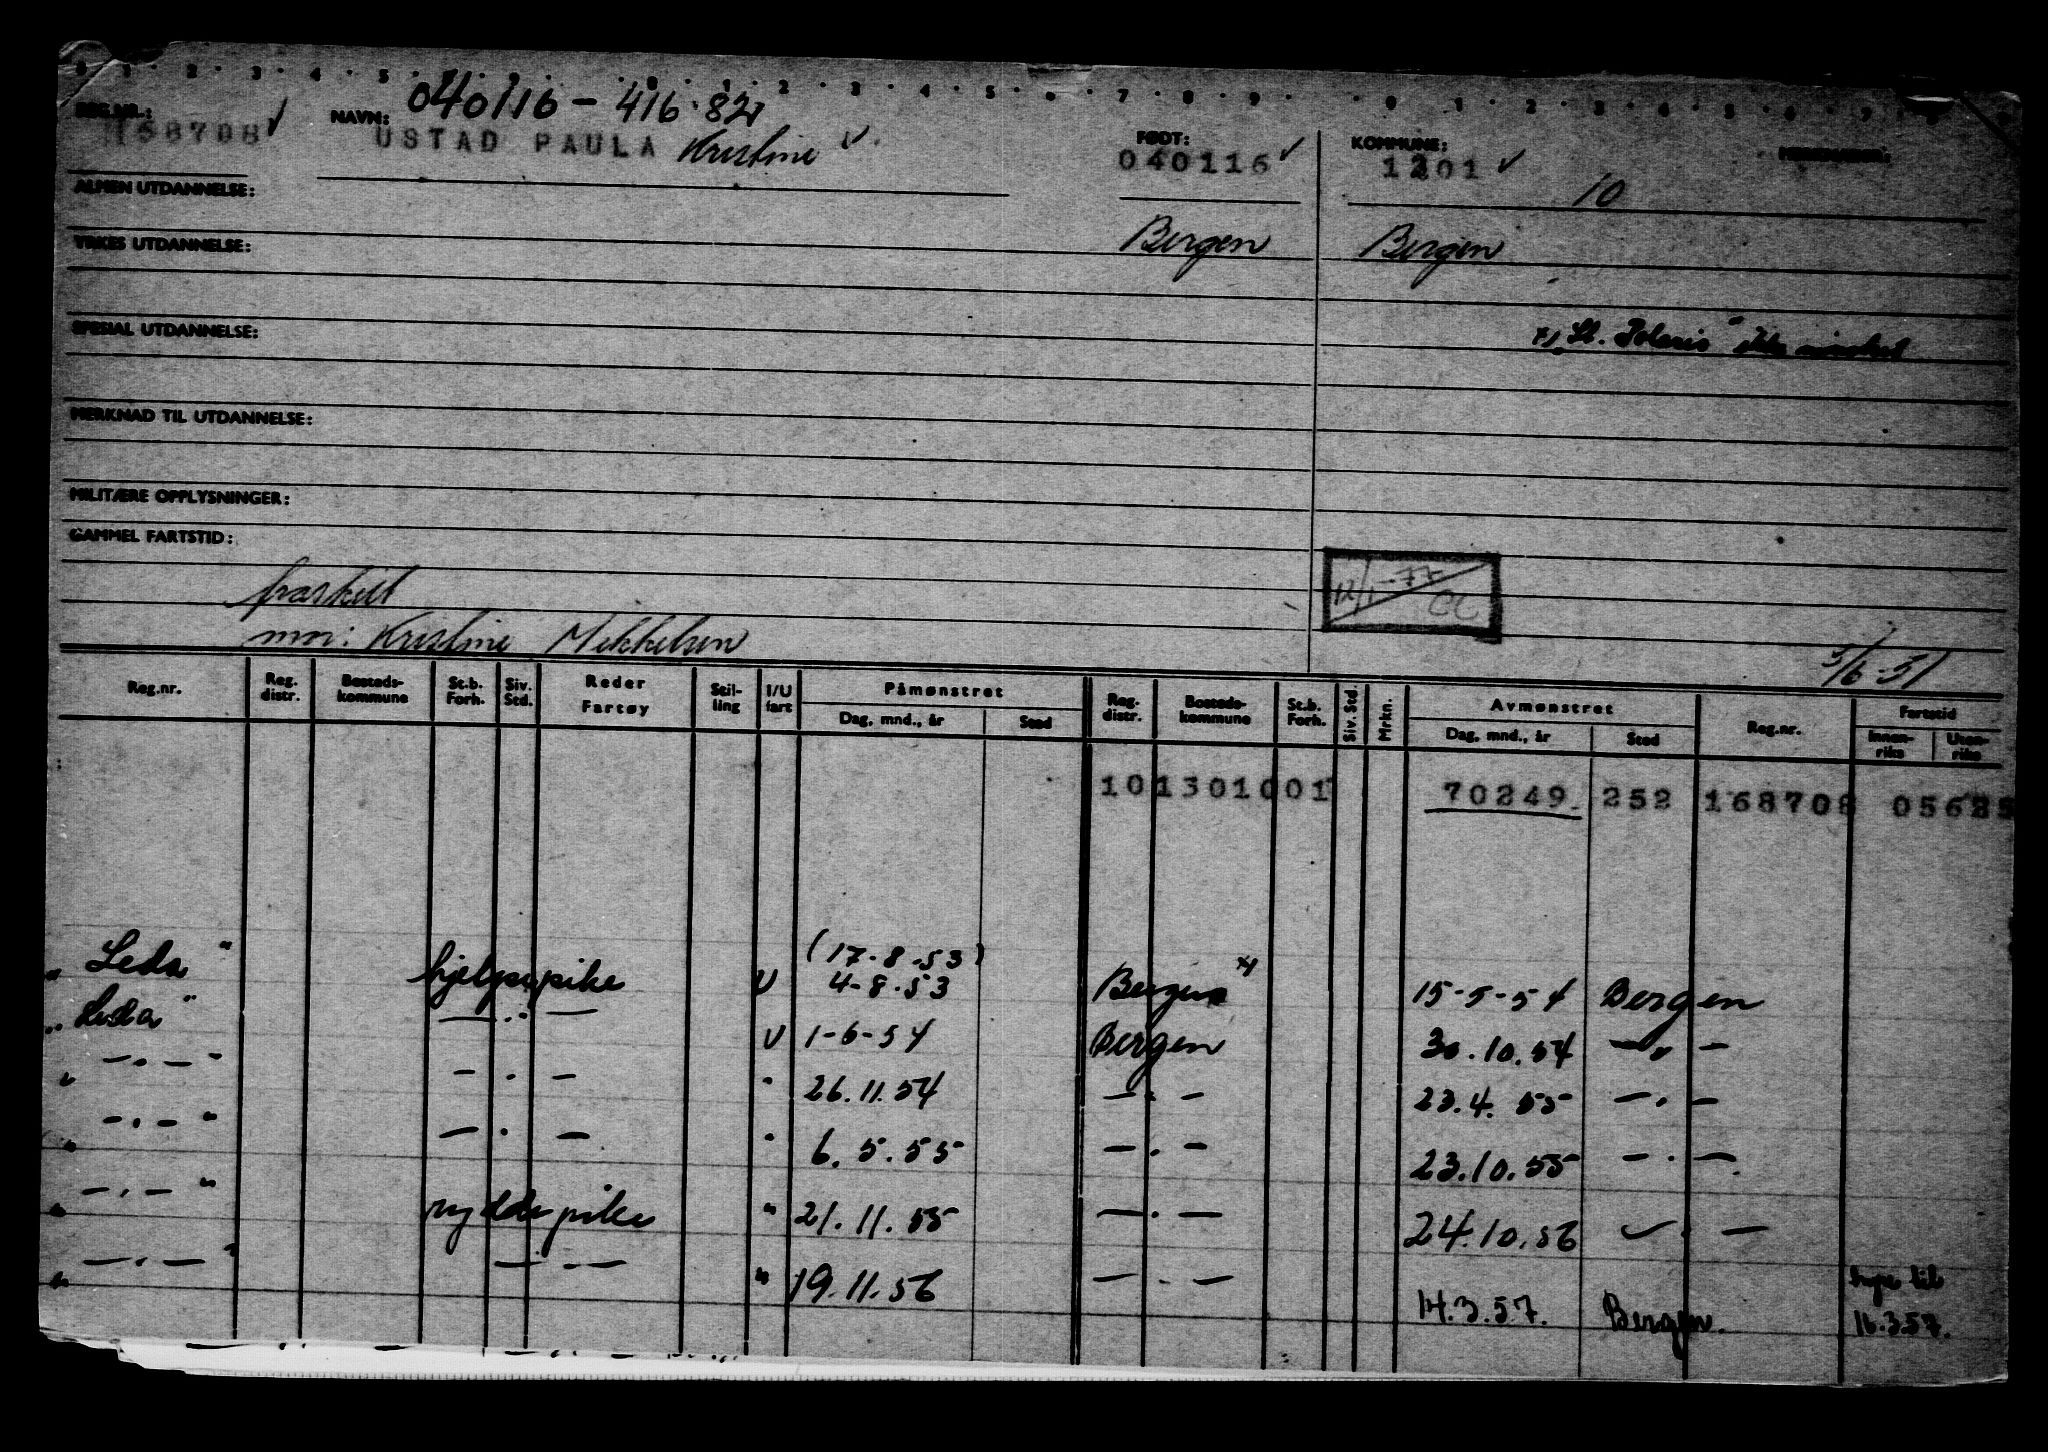 040116 - 416.82
REG.NR.: NAVN: FØDT: KOMMUNE:
168708 USTAD PAULA Kristine 040116 1301
ALMEN UTDANNELSE: 10
YRKES UTDANNELSE: Bergen Bergen
SPESIAL UTDANNELSE: x) "St. Polaris" ikke
MERKNAD TIL UTDANNELSE:
MILITÆRE OPPLYSNINGER:
GAMMEL FARTSTID:
fraskilt 12/1-77
mor: Kristine Mikkelsen 5/6-51
Reg.nr. Reg. distr. Bosteds- kommune St.b. Forh. Siv. Std. Reder Fartøy Stil- ling I/U fart Påmønstret Dag, mnd., år Sted Reg. distr. Bosteds- kommune St.b. Forh. Siv. Std. Mrkn. Avmønstret Dag, mnd., år Sted Reg.nr. Fartstid Innen- riks Uten- riks
101301001 70249 252 168708
(17-8-53)
"Leda" hjelpepike U 4-8-53 Bergen x) 15-5-54 Bergen
"Leda" — . — U 1-6-54 Bergen 30.10.54 — " —
" — . — " — . — " 26.11.54 — . — 23.4.55 — . —
" — . — " — . — " 6.5.55 — . — 23.10.55 — . —
" — . — " ryddepike " 21.11.55 — . — 24.10.56 — . —
" — . — " — . — " 19.11.56 — . — 14.3.57. Bergen. hyre til
16.3.57.